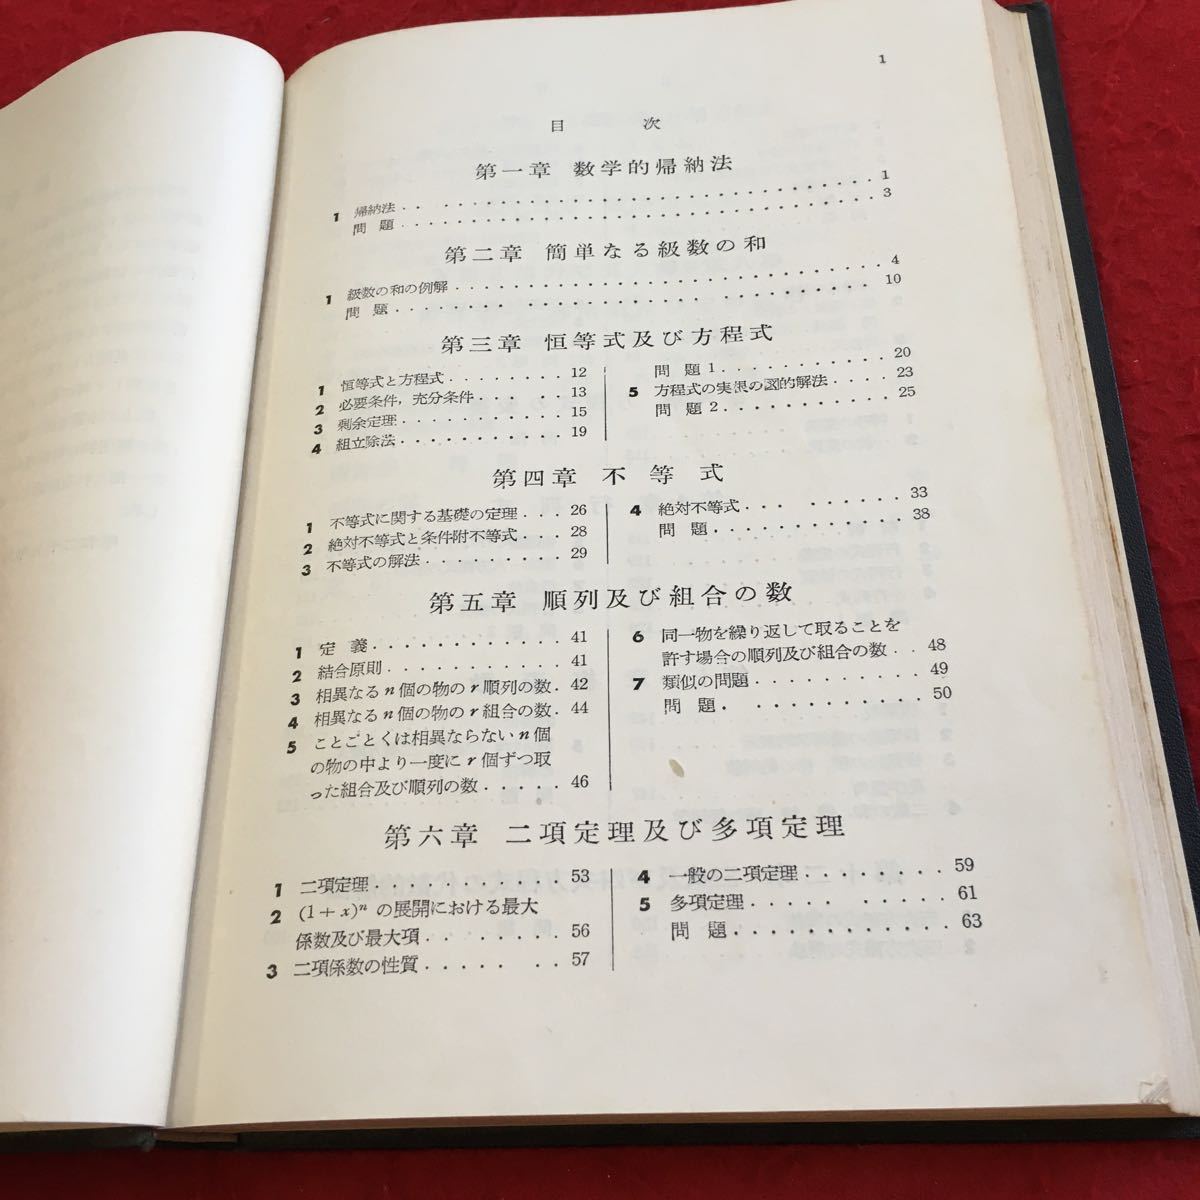 1
目 次
第一章 数学的帰納法
1 帰納法 . . . . . . . . . . . . . . . . . . . . . . . . . . 1
問 題 . . . . . . . . . . . . . . . . . . . . . . . . . . 3
第二章 簡単なる級数の和
1 級数の和の例解 . . . . . . . . . . . . . . . . . . . . . . 4
問 題 . . . . . . . . . . . . . . . . . . . . . . . . . . 10
第三章 恒等式及び方程式
1 恒等式と方程式 . . . . . . . . 12
2 必要条件,充分条件 . . . . . . 13
3 剰余定理 . . . . . . . . . . . 15
4 組立除法 . . . . . . . . . . . 19
問 題 1 . . . . . . . . . . . 20
5 方程式の実根の図的解法 . . . . 23
問 題 2 . . . . . . . . . . . 25
第四章 不 等 式
1 不等式に関する基礎の定理 . . . 26
2 絶対不等式と条件附不等式 . . . 28
3 不等式の解法 . . . . . . . . . 29
4 絶対不等式 . . . . . . . . . 33
問 題 . . . . . . . . . . . . 38
第五章 順列及び組合の数
1 定 義 . . . . . . . . . . . . 41
2 結合原則 . . . . . . . . . . . 41
3 相異なる n 個の物の r 順列の数 . 42
4 相異なる n 個の物の r 組合の数 . 44
5 ことごとくは相異ならない n 個
の物の中より一度に r 個ずつ取
った組合及び順列の数 . . . . . 46
6 同一物を繰り返して取ることを
許す場合の順列及び組合の数 . . 48
7 類似の問題 . . . . . . . . . . 49
問 題 . . . . . . . . . . . . 50
第六章 二項定理及び多項定理
1 二項定理 . . . . . . . . . . . 53
2 (1+x)ⁿ の展開における最大
係数及び最大項 . . . . . . . . 56
3 二項係数の性質 . . . . . . . . 57
4 一般の二項定理 . . . . . . . . 59
5 多項定理 . . . . . . . . . . . 61
問 題 . . . . . . . . . . . . 63